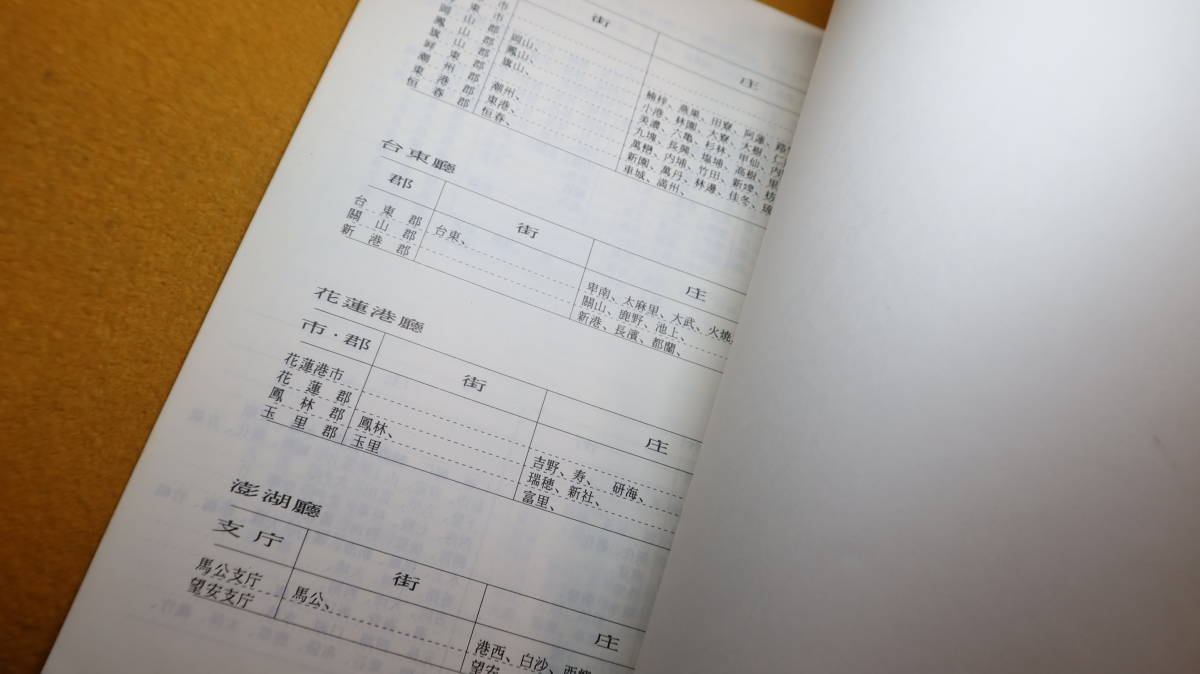 市
東 市
岡 山 郡 岡山、
鳳 山 郡 鳳山、
旗 山 郡 旗山、
屏 東 郡
潮 州 郡 潮州、
東 港 郡 東港、
恒 春 郡 恒春、
街 庄
楠梓、燕巣、田寮、阿蓮、路
小港、林園、大寮、大樹、仁
美濃、六亀、杉林、甲仙、内
九塊、長興、塩埔、高樹、里
萬巒、内埔、竹田、新埤、枋
新園、萬丹、林邊、佳冬、琉
車城、満州、
台東廳
郡 街 庄
台 東 郡 台東、 卑南、太麻里、大武、火燒
關 山 郡 關山、鹿野、池上、
新 港 郡 新港、長濱、都蘭、
花蓮港廳
市・郡 街 庄
花蓮港市
花 蓮 郡 吉野、寿、 研海、
鳳 林 郡 鳳林、 瑞穂、新社、
玉 里 郡 玉里 富里、
澎湖廳
支 庁 街 庄
馬公支庁 馬公、 港西、白沙、西嶼
望安支庁 望安